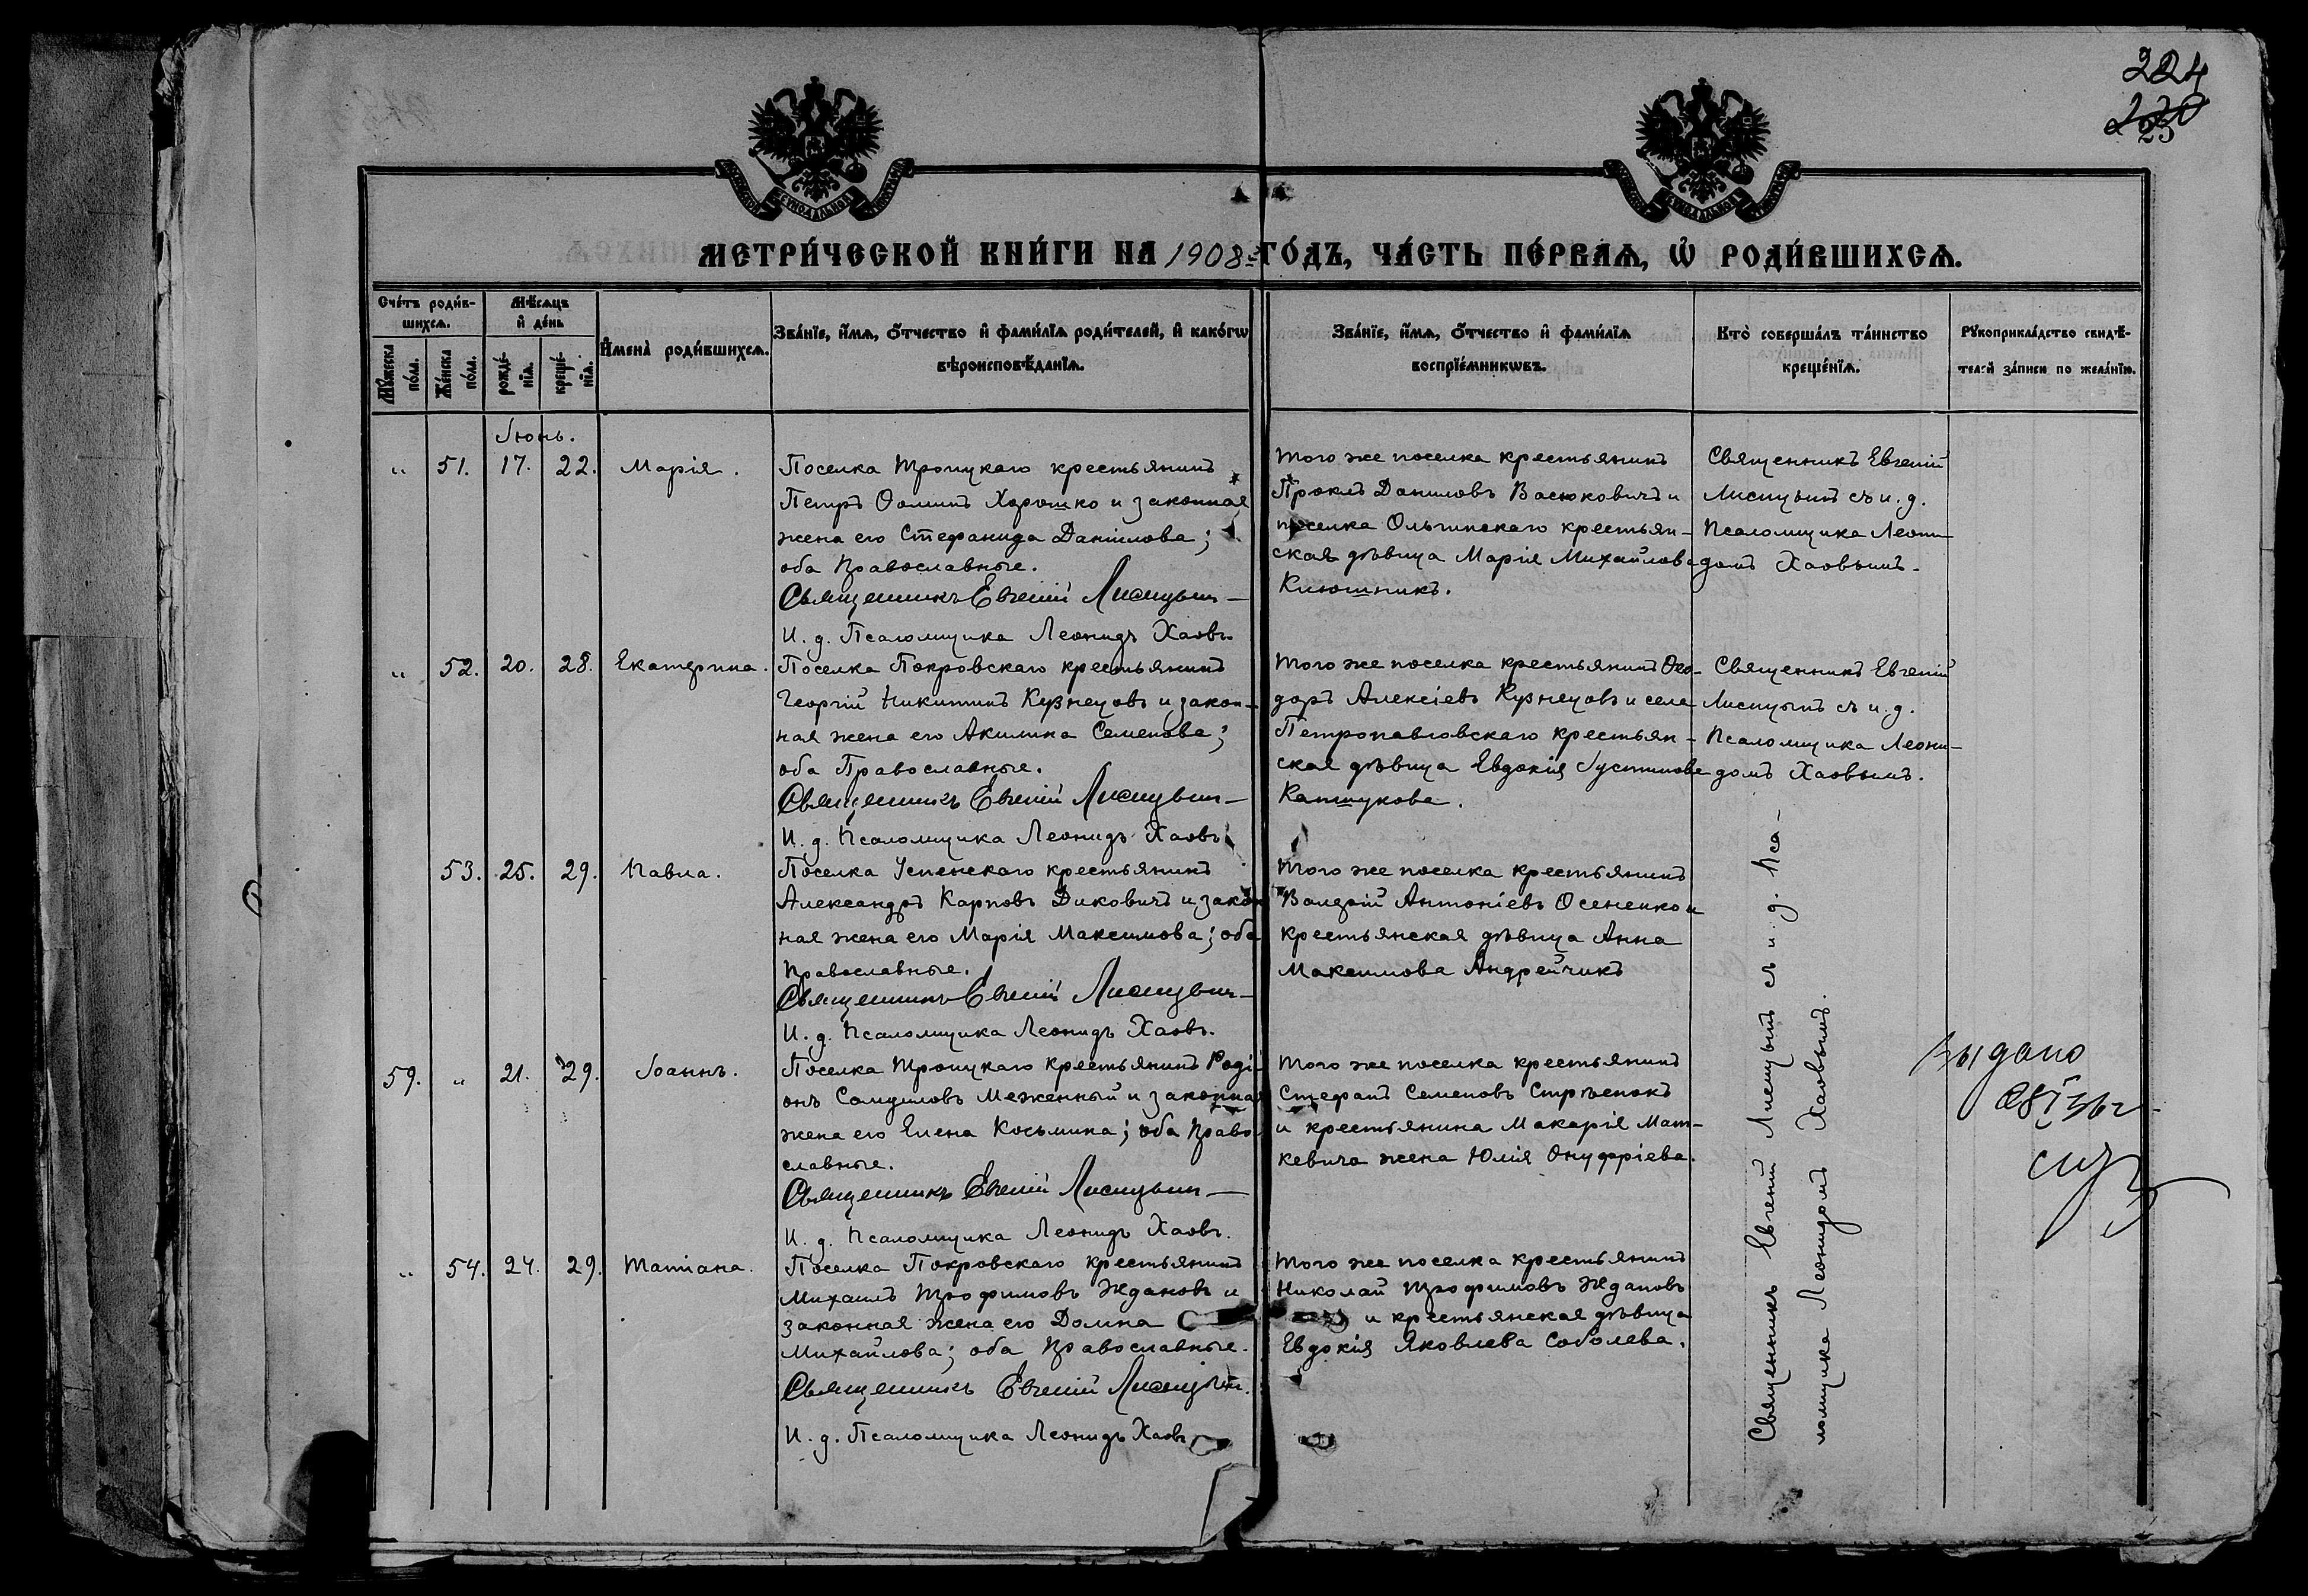 224
220
25
МЕТРИ́ЧЕСКОЙ КНИ́ГИ НА 1908 ГО́ДЪ, ЧА́СТЬ ПЕ́РВАѦ, Ѡ РОДИ́ВШИХСѦ.
Сче́тъ роди́в-
шихсѧ.
Мѣ́сѧцъ
и де́нь
Мꙋ́жеска по́ла.
Же́нска по́ла.
рожде́-
нїѧ.
креще́-
нїѧ.
Имена̀ роди́вшихсѧ.
Зва́нїе, и́мѧ, ѻ́тчество и фами́лїѧ роди́телей, и како́гѡ
вѣроисповѣ́данїѧ.
Зва́нїе, и́мѧ, ѻ́тчество и фами́лїѧ
воспрїе́мникѡвъ.
Кто̀ соверша́лъ та́инство
креще́нїѧ.
Рꙋкоприкла́дство свидѣ́-
телей за́писи по жела́нїю.
Іюнь.
" 51. 17. 22. Марія.
Поселка Троицкаго крестьянинъ
Петръ Ѳоминъ Хорошко и законная
жена его Стефанида Даніилова;
оба Православные.
Священникъ Евгеній Лисицынъ
И. д. Псаломщика Леонидъ Хаовъ
Того же поселка крестьянинъ
Проклъ Даниловъ Васюковичъ и
поселка Ольгинскаго крестьян-
ская дѣвица Марія Михайлова
Клюшникъ.
Священникъ Евгеній
Лисицынъ съ и. д.
Псаломщика Леони-
домъ Хаовымъ.
" 52. 20. 28. Екатерина.
Поселка Покровскаго крестьянинъ
Георгій Никитинъ Кузнецовъ и закон-
ная жена его Акилина Семенова;
оба Православные.
Священникъ Евгеній Лисицынъ
И. д. Псаломщика Леонидъ Хаовъ
Того же поселка крестьянинъ Ѳео-
доръ Алексіевъ Кузнецовъ и села
Петропавловскаго крестьян-
ская дѣвица Евдокія Іустинова
Капшукова.
Священникъ Евгеній
Лисицынъ съ и. д.
Псаломщика Леони-
домъ Хаовымъ.
53. 25. 29. Павла.
Поселка Успенскаго крестьянинъ
Александръ Карповъ Диковичъ и закон
ная жена его Марія Максимова; оба
Православные.
Священникъ Евгеній Лисицынъ
И. д. Псаломщика Леонидъ Хаовъ.
Того же поселка крестьянинъ
Валерій Антоніевъ Осененко и
крестьянская дѣвица Анна
Максимова Андрейчикъ
59. " 21. 29. Іоаннъ.
Поселка Троицкаго крестьянинъ Роді-
онъ Самуиловъ Меженный и законная
жена его Елена Косьмина; оба Право-
славные.
Священникъ Евгеній Лисицынъ
И. д. Псаломщика Леонидъ Хаовъ.
Того же поселка крестьянинъ
Стефанъ Семеновъ Стрѣенокъ
и крестьянина Макарія Мат-
кевича жена Юлія Онуфріева.
Выдано
" 54. 24. 29. Татіана.
Поселка Покровскаго крестьянинъ
Михаилъ Трофимовъ Ждановъ и
законная жена его Домна
Михайлова; оба Православные.
Священникъ Евгеній Лисицынъ.
И. д. Псаломщика Леонидъ Хаовъ
Того же поселка крестьянинъ
Николай Трофимовъ Ждановъ
и крестьянская дѣвица
Евдокія Яковлева Соболева.
Священникъ Евгеній Лисицынъ съ и. д. Пса-
ломщика Леонидомъ Хаовымъ.